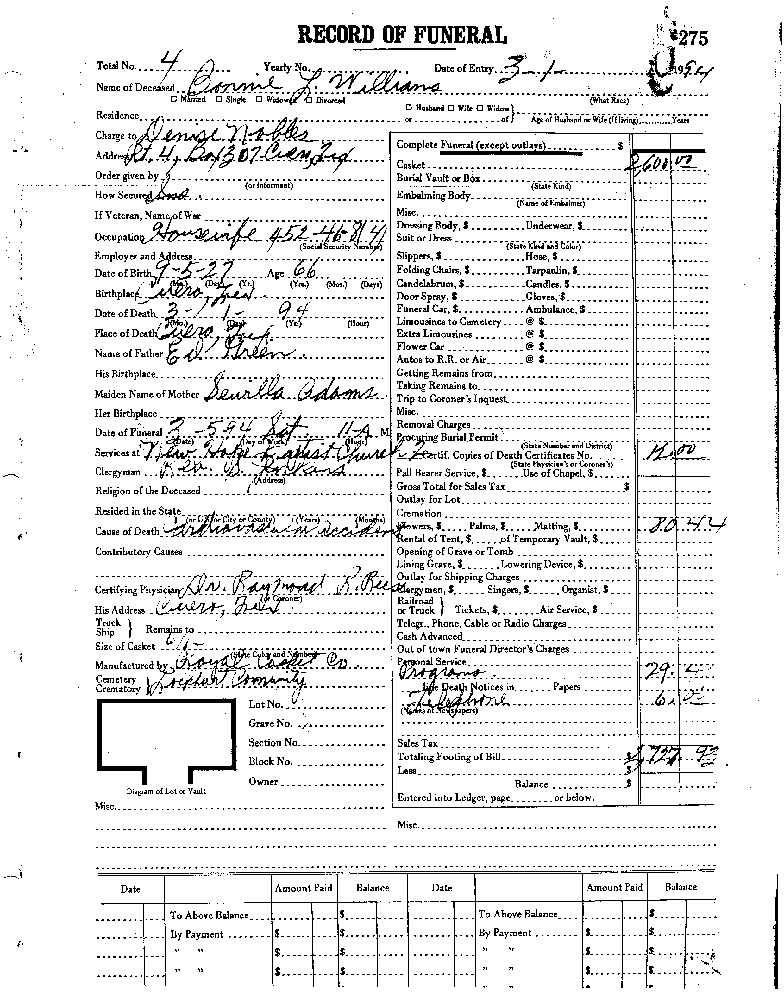 RECORD OF FUNERAL
275
Total No. 4 Yearly No. Date of Entry 3-1- 1994
Name of Deceased Bonnie L. Williams
☐ Married ☐ Single ☐ Widowed ☐ Divorced (What Race)
Residence ☐ Husband ☐ Wife ☐ Widow
or of Age of Husband or Wife (if living) Years
Charge to Denise Nobles
Address Rt. 4, Box 307 Cuero,
Order given by
(or Informant)
How Secured
If Veteran, Name of War
Occupation Housewife
(Social Security Number)
Employer and Address
Date of Birth 9-5-27 Age 66
(Mo.) (Day) (Yr.) (Yrs.) (Mos.) (Days)
Birthplace Cuero,
Date of Death 3-1-94
(Mo.) (Day) (Yr.) (Hour)
Place of Death Cuero,
Name of Father Ed Green
His Birthplace
Maiden Name of Mother Adams
Her Birthplace
Date of Funeral 3-5-94 Sat. 11-A M.
(Date) (Day of Week) (Hour)
Services at New Hope Baptist Church
Clergyman Rev.
(Address)
Religion of the Deceased
Resided in the State
(or US or City or County) (Years) (Months)
Cause of Death accident
Contributory Causes
Certifying Physician Dr. Raymond R. Reese
(or Coroner)
His Address Cuero,
Truck
Ship } Remains to
Size of Casket
(State Color and Number)
Manufactured by Royal Casket Co
Cemetery
Crematory Community
Lot No.
Grave No.
Section No.
Block No.
Owner
Diagram of Lot or Vault
Misc.
Complete Funeral (except outlays) $
Casket 600.00
Burial Vault or Box
(State Kind)
Embalming Body
(Name of Embalmer)
Misc.
Dressing Body, $ Underwear, $
Suit or Dress
(State Kind and Color)
Slippers, $ Hose, $
Folding Chairs, $ Tarpaulin, $
Candelabrum, $ Candles, $
Door Spray, $ Gloves, $
Funeral Car, $ Ambulance, $
Limousines to Cemetery @ $
Extra Limousines @ $
Flower Car @ $
Autos to R.R. or Air @ $
Getting Remains from
Taking Remains to
Trip to Coroner's Inquest
Misc.
Removal Charges
Procuring Burial Permit
(State Number and District)
2 Certif. Copies of Death Certificates No.
(State Physician's or Coroner's)
Pall Bearer Service, $ Use of Chapel, $
Gross Total for Sales Tax $
Outlay for Lot
Cremation
Flowers, $ Palms, $ Matting, $ 80.44
Rental of Tent, $ of Temporary Vault, $
Opening of Grave or Tomb
Lining Grave, $ Lowering Device, $
Outlay for Shipping Charges
Clergymen, $ Singers, $ Organist, $
Railroad
or Truck } Tickets, $ Air Service, $
Telegr., Phone, Cable or Radio Charges
Cash Advanced
Out of town Funeral Director's Charges
Personal Service
Programs 29.
Death Notices in Papers
Telephone 6.
(Names of Newspapers)
Sales Tax
Totaling Footing of Bill $ 727.
Less $
Balance $
Entered into Ledger, page or below.
Misc.
Date Amount Paid Balance Date Amount Paid Balance
To Above Balance $ To Above Balance $
By Payment $ $ By Payment $ $
" " $ $ " " $ $
" " $ $ " " $ $